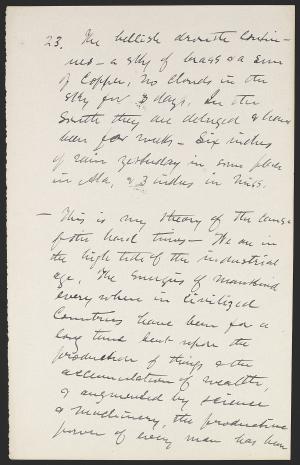 23. The hellish drouth contin-
ues - a sky of brass & a sun
of copper, No clouds in the
sky for 3 days. In the
South they are deluged & have
been for weeks - Six inches
of rain yesterday in some places
in Ala, & 3 inches in Miss.
- This is my theory of the cause
of the hard times - We are in
the high tide of the industrial
age. The energies of mankind
every where in civilized
Countries have been for a
long time bent upon the
production of things & the
accumulation of wealth,
& augmented by science
& machinery, the productive
power of every man has been